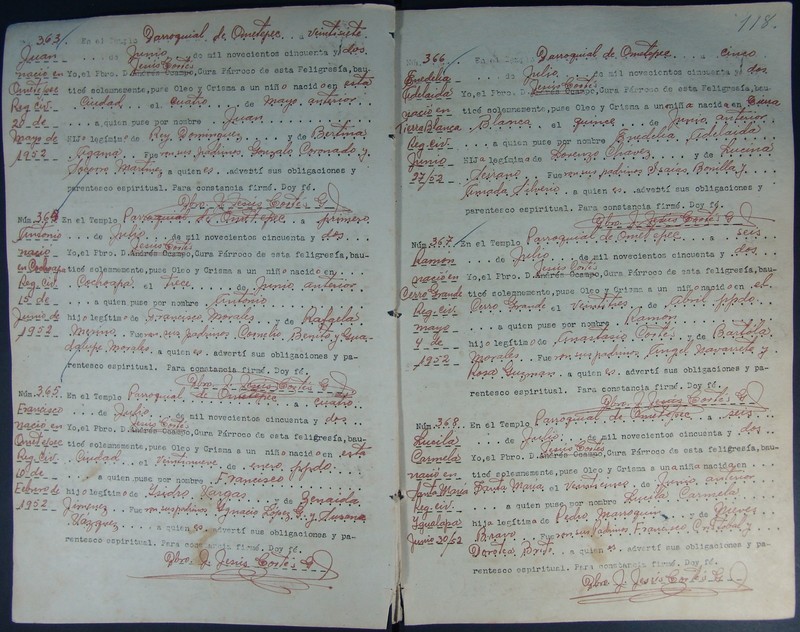 Núm. 363 En el Templo Parroquial de Ometepec a veintisiete
Juan de Junio de mil novecientos cincuenta y dos
Jesús Cortés
nació en Yo, el Pbro. D. Andrés Ocampo, Cura Párroco de esta Feligresía, bau-
Ometepec ticé solemnemente, puse Oleo y Crisma a un niño nacido en esta
Reg. civ. Ciudad el cuatro de Mayo anterior
20 de a quien puse por nombre Juan
Mayo de Hijo legítimo de Rey Dominguez y de Bertina
1952 Fueron sus padrinos Gonzalo Coronado y
a quien es advertí sus obligaciones y
parentesco espiritual. Para constancia firmé. Doy fé.
Pbro. J. Jesús Cortés G.
Núm. 364 En el Templo Parroquial de Ometepec a primero
Antonio de Julio de mil novecientos cincuenta y dos
Jesús Cortés
nació Yo, el Pbro. D. Andrés Ocampo, Cura Párroco de esta feligresía, bau-
en Cochoapa ticé solemnemente, puse Oleo y Crisma a un niño nacido en
Reg. Civ. Cochoapa el trece de Junio anterior
15 de a quien puse por nombre Antonio
Junio de hijo legítimo de Francisco Morales y de Rafaela
1952 Merino Fueron sus padrinos Cornelio Benito y Gua-
dalupe Morales a quien es advertí sus obligaciones y pa-
rentesco espiritual. Para constancia firmé. Doy fé.
Pbro. J. Jesús Cortés G.
Núm. 365 En el Templo Parroquial de Ometepec a cuatro
Francisco de Julio de mil novecientos cincuenta y dos
Jesús Cortés
nació en Yo, el Pbro. D. Andrés Ocampo, Cura Párroco de esta Feligresía, bau-
Ometepec ticé solemnemente, puse Oleo y Crisma a un niño nacido en esta
Reg. Civ. Ciudad el veintinueve de enero ppdo.
10 de a quien puse por nombre Francisco
Febrero de hijo legítimo de Isidro Vargas y de Zenaida
1952 Jimenez Fueron sus padrinos Ignacio López G. y Susana
Vazquez a quien es advertí sus obligaciones y pa-
rentesco espiritual. Para constancia firmé. Doy fé.
Pbro. J. Jesús Cortés G.
118.
366 En el Templo Parroquial de Ometepec a cinco
Eudelia de Julio de mil novecientos cincuenta y dos
Jesús Cortés
Adelaida Yo, el Pbro. D. Andrés Ocampo, Cura Párroco de esta Feligresía, bau-
nació en ticé solemnemente, puse Oleo y Crisma a un niña nacida en Tierra
Tierra Blanca Blanca el quince de Junio anterior
Reg. Civ. a quien puse por nombre Eudelia Adelaida
Junio Hija legítima de Lorenzo Chavez y de Lucina
27/52 Fueron sus padrinos Isaias Bonilla y
Silverio a quien es advertí sus obligaciones y
parentesco espiritual. Para constancia firmé. Doy fé.
Pbro. J. Jesús Cortés G.
Núm. 367 En el Templo Parroquial de Ometepec a seis
Ramón de Julio de mil novecientos cincuenta y dos
Jesús Cortés
nació en Yo, el Pbro. D. Andrés Ocampo, Cura Párroco de esta feligresía, bau-
Cerro Grande ticé solemnemente, puse Oleo y Crisma a un niño nacido en el
Reg. civ. Cerro Grande el veintitres de Abril ppdo.
mayo a quien puse por nombre Ramón
4 de hijo legítimo de Anastasio Cortés y de Bartola
1952 Morales Fueron sus padrinos Angel Navarrete y
Rosa Guzman a quien es advertí sus obligaciones y pa-
rentesco espiritual. Para constancia firmé. Doy fé.
Pbro. J. Jesús Cortés G.
Núm. 368 En el Templo Parroquial de Ometepec a seis
Lucila de Julio de mil novecientos cincuenta y dos
Jesús Cortés
Carmela Yo, el Pbro. D. Andrés Ocampo, Cura Párroco de esta Feligresía, bau-
nació en ticé solemnemente, puse Oleo y Crisma a un a niña nacida en
Santa María Santa María el veintiuno de Junio anterior
Reg. civ. a quien puse por nombre Lucila Carmela
Igualapa hija legítima de Pedro Marroquin y de Nieves
Junio 30/52 Bravo Fueron sus padrinos Francisco Cortés y
Dorotea Brito a quien es advertí sus obligaciones y pa-
rentesco espiritual. Para constancia firmé. Doy fé.
Pbro. J. Jesús Cortés G.